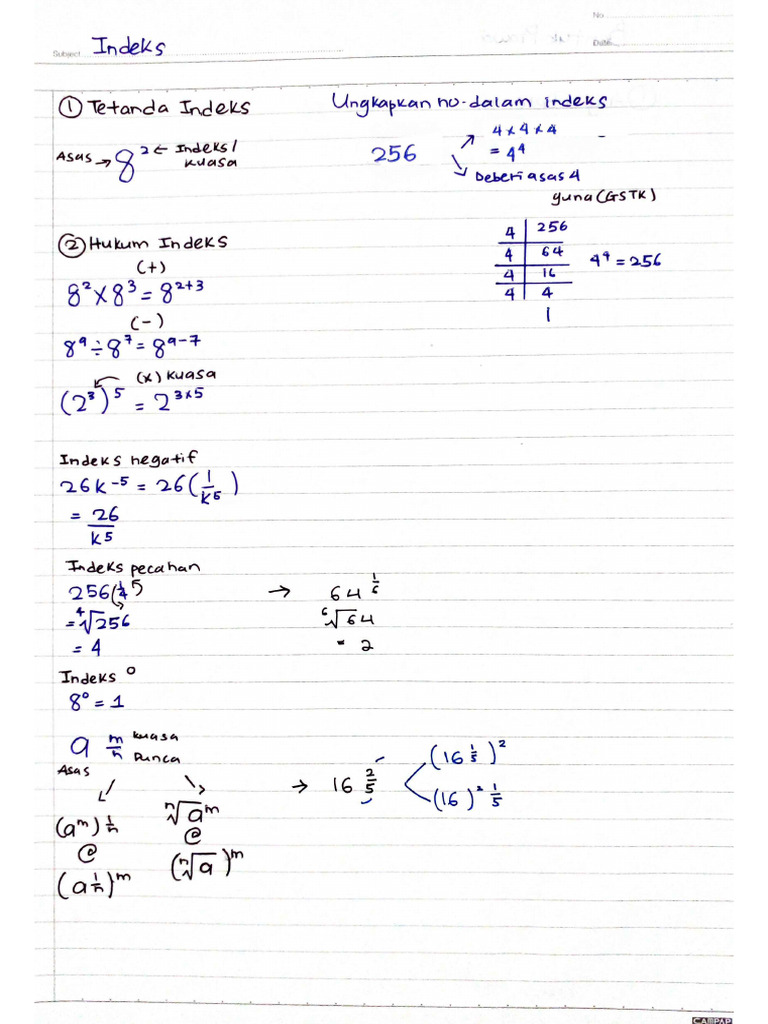 No
Subject Indeks
Date
① Tetanda Indeks
Asas → 8² ← Indeks/
kuasa
Ungkapkan no. dalam indeks
256
4 x 4 x 4
= 4⁴
Deberi asas 4
guna (GSTK)
4 | 256
4 | 64
4 | 16
4 | 4
1
4⁴ = 256
② Hukum Indeks
(+)
8² x 8³ = 8²⁺³
(-)
8⁹ ÷ 8⁷ = 8⁹⁻⁷
(x) kuasa
(2³)⁵ = 2³ˣ⁵
Indeks negatif
26k⁻⁵ = 26(1/k⁵)
= 26/k⁵
Indeks pecahan
256(1/4)
= ⁴√256
= 4
→ 64^(1/6)
⁶√64
= 2
Indeks 0
8⁰ = 1
a^(m/n) kuasa
Punca
Asas
(aᵐ)^(1/n)
@
(a^(1/n))ᵐ
ⁿ√aᵐ
@
(ⁿ√a)ᵐ
→ 16^(2/5)
(16^(1/5))²
(16)²^(1/5)
CAMPAP